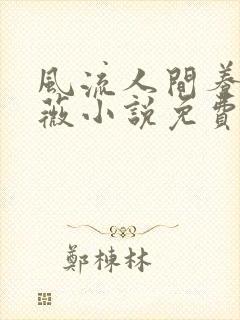 風流人間養
薇小說免費
鄭棟林